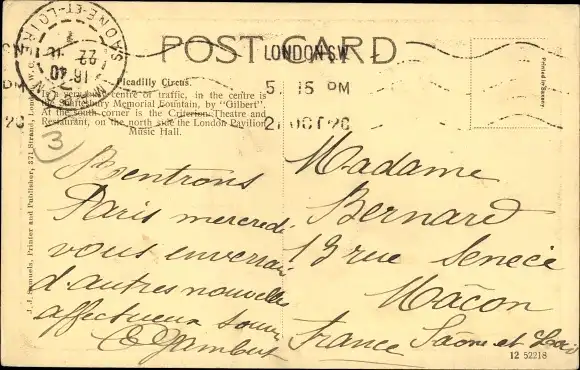 POST CARD
LONDON.S.W.
5 15 PM
21 OCT 20
SAONE-ET-LOIRE
16 40
22
Picadilly Circus.
centre of traffic, in the centre is
the Shaftesbury Memorial Fountain, by "Gilbert".
At the south corner is the Criterion Theatre and
Restaurant, on the north side the London Pavilion
Music Hall.
J. J. Samuels, Printer and Publisher, 371, Strand, London
Printed in Saxony
3
Rentrons
Paris mercredi
vous enverrai
d'autres nouvelles
affectueux
Madame
Bernard
13 rue Senecé
Mâcon
France Saône et Loire
12 52218